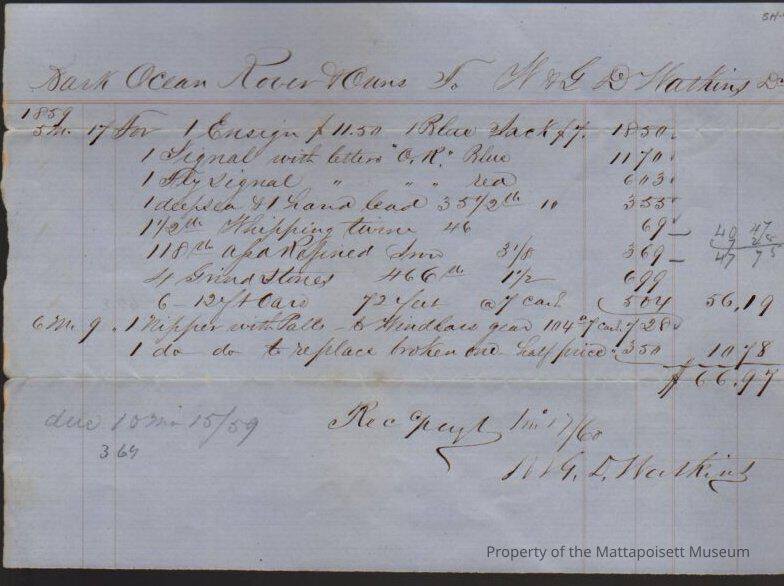 SH-
Bark Ocean Rover & Owns To W & G D Watkins Dr
1859
5 Mo 17 For 1 Ensign $11.50 1 Blue Jack $7. 18 50
1 Signal with letters "O.R." Blue 11 70
1 Fly Signal " " " red 6 03
1 deepsea & 1 hand lead 35 1/2 lb 10 3 55
1 1/2 lb Whipping twine 46 69
118 lb Refined Iron 3 1/8 3 69
4 Grind Stones 466 lb 1 1/2 6 99
6 - 12 ft Oars 72 feet @ 7 cash 5 04 56.19
6 Mo 9. 1 Nipper with Palls to Windlass gear 104 @ 7 cash 7 28
1 do do to replace broken one half price 3 50 10 78
$66.97
40 47
7 28
47 75
due 10 Mo 15/59
3 69
Rec Payt 1 mo 17/60
W & G. D. Watkins
Property of the Mattapoisett Museum